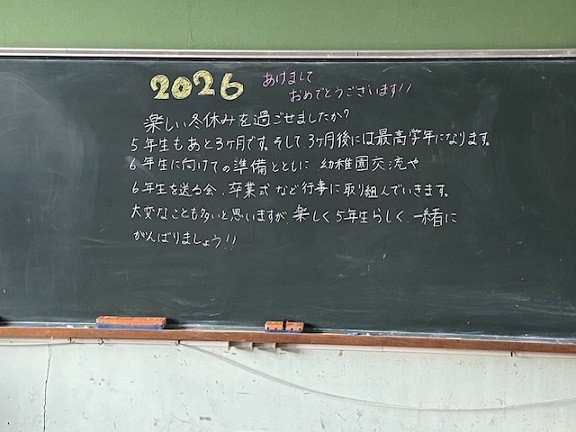 2026 あけまして
おめでとうございます!!
楽しい冬休みを過ごせましたか?
5年生もあと3ヶ月です。そして3ヶ月後には最高学年になります。
6年生に向けての準備とともに 幼稚園交流や
6年生を送る会、卒業式など行事に取り組んでいきます。
大変なことも多いと思いますが、楽しく5年生らしく、一緒に
がんばりましょう!!